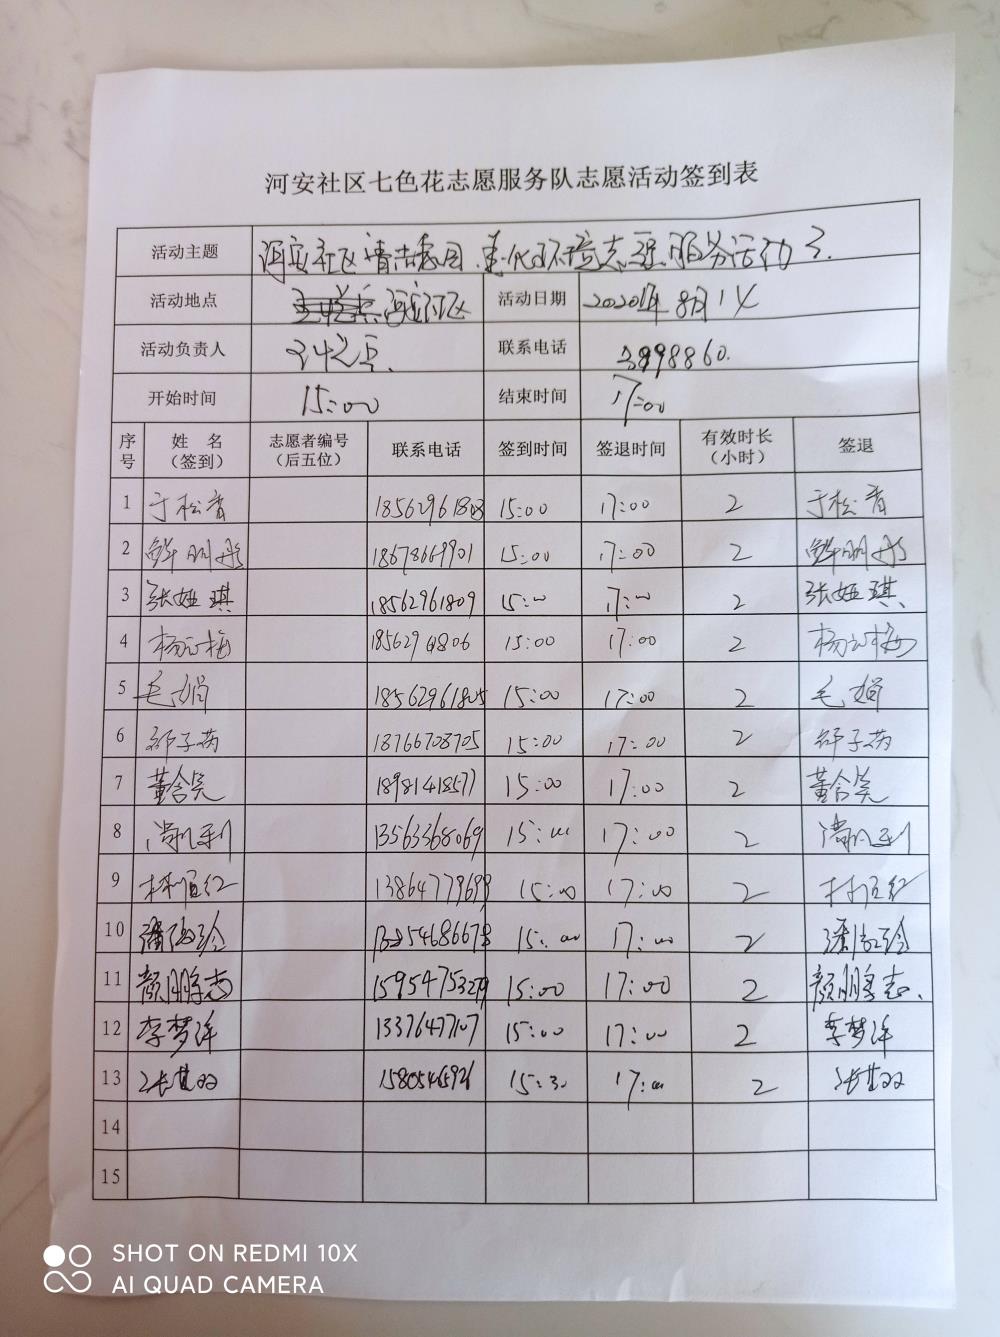 河安社区七色花志愿服务队志愿活动签到表
活动主题 河安社区清洁家园 美化环境志愿服务活动
活动地点 河安社区 活动日期 2020年8月14
活动负责人 联系电话 3898860.
开始时间 15:00 结束时间 17:00
序号 姓 名（签到） 志愿者编号（后五位） 联系电话 签到时间 签退时间 有效时长（小时） 签退
1 于松青 18562961808 15:00 17:00 2 于松青
2 18678669901 15:00 17:00 2
3 张娅琪 18562961809 15:00 17:00 2 张娅琪
4 杨 梅 15:00 17:00 2 杨 梅
5 毛娟 18562961805 15:00 17:00 2 毛娟
6 子 18766708705 15:00 17:00 2 子
7 董含笑 18981418577 15:00 17:00 2 董含笑
8 13563368069 15:00 17:00 2
9 林恒红 13864779699 15:00 17:00 2 林恒红
10 潘 珍 54686678 15:00 17:00 2 潘 珍
11 颜鹏志 15954753279 15:00 17:00 2 颜鹏志
12 李梦洋 13376477107 15:00 17:00 2 李梦洋
13 张其双 15:30 17:00 2 张其双
14
15
SHOT ON REDMI 10X
AI QUAD CAMERA